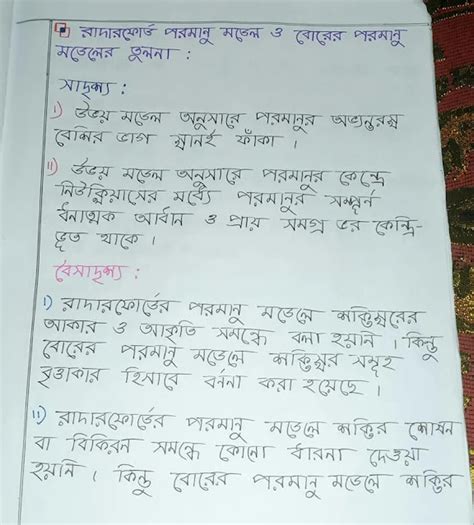 রাদারফোর্ড পরমানু মডেল ও বোরের পরমানু
মডেলের তুলনা :
সাদৃশ্য :
i) উভয় মডেল অনুসারে পরমানুর অভ্যন্তরস্থ
বেশির ভাগ স্থানই ফাঁকা ।
ii) উভয় মডেল অনুসারে পরমানুর কেন্দ্রে
নিউক্লিয়াসের মধ্যে পরমানুর সম্পূর্ন
ধনাত্মক আধান ও প্রায় সমগ্র ভর কেন্দ্রি-
ভূত থাকে ।
বৈসাদৃশ্য :
i) রাদারফোর্ডের পরমানু মডেলে শক্তিস্তরের
আকার ও আকৃতি সমন্ধে বলা হয়নি । কিন্তু
বোরের পরমানু মডেলে শক্তিস্তর সমূহ
বৃত্তাকার হিসাবে বর্ননা করা হয়েছে ।
ii) রাদারফোর্ডের পরমানু মডেলে শক্তির শোষন
বা বিকিরন সমন্ধে কোনো ধারনা দেওয়া
হয়নি । কিন্তু বোরের পরমানু মডেলে শক্তির